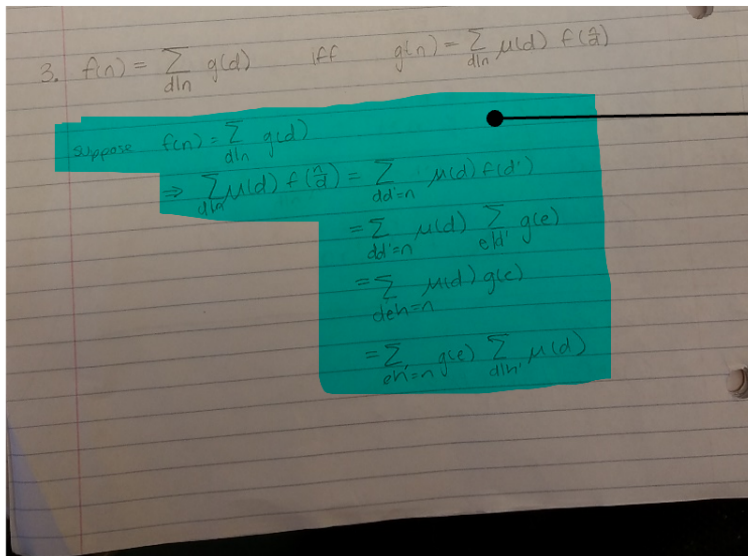 3. f(n) = ∑_{d|n} g(d) iff g(n) = ∑_{d|n} μ(d) f(n/d)
suppose f(n) = ∑_{d|n} g(d)
⇒ ∑_{d|n} μ(d) f(n/d) = ∑_{dd'=n} μ(d) f(d')
= ∑_{dd'=n} μ(d) ∑_{e|d'} g(e)
= ∑_{deh=n} μ(d) g(e)
= ∑_{eh'=n} g(e) ∑_{d|h'} μ(d)